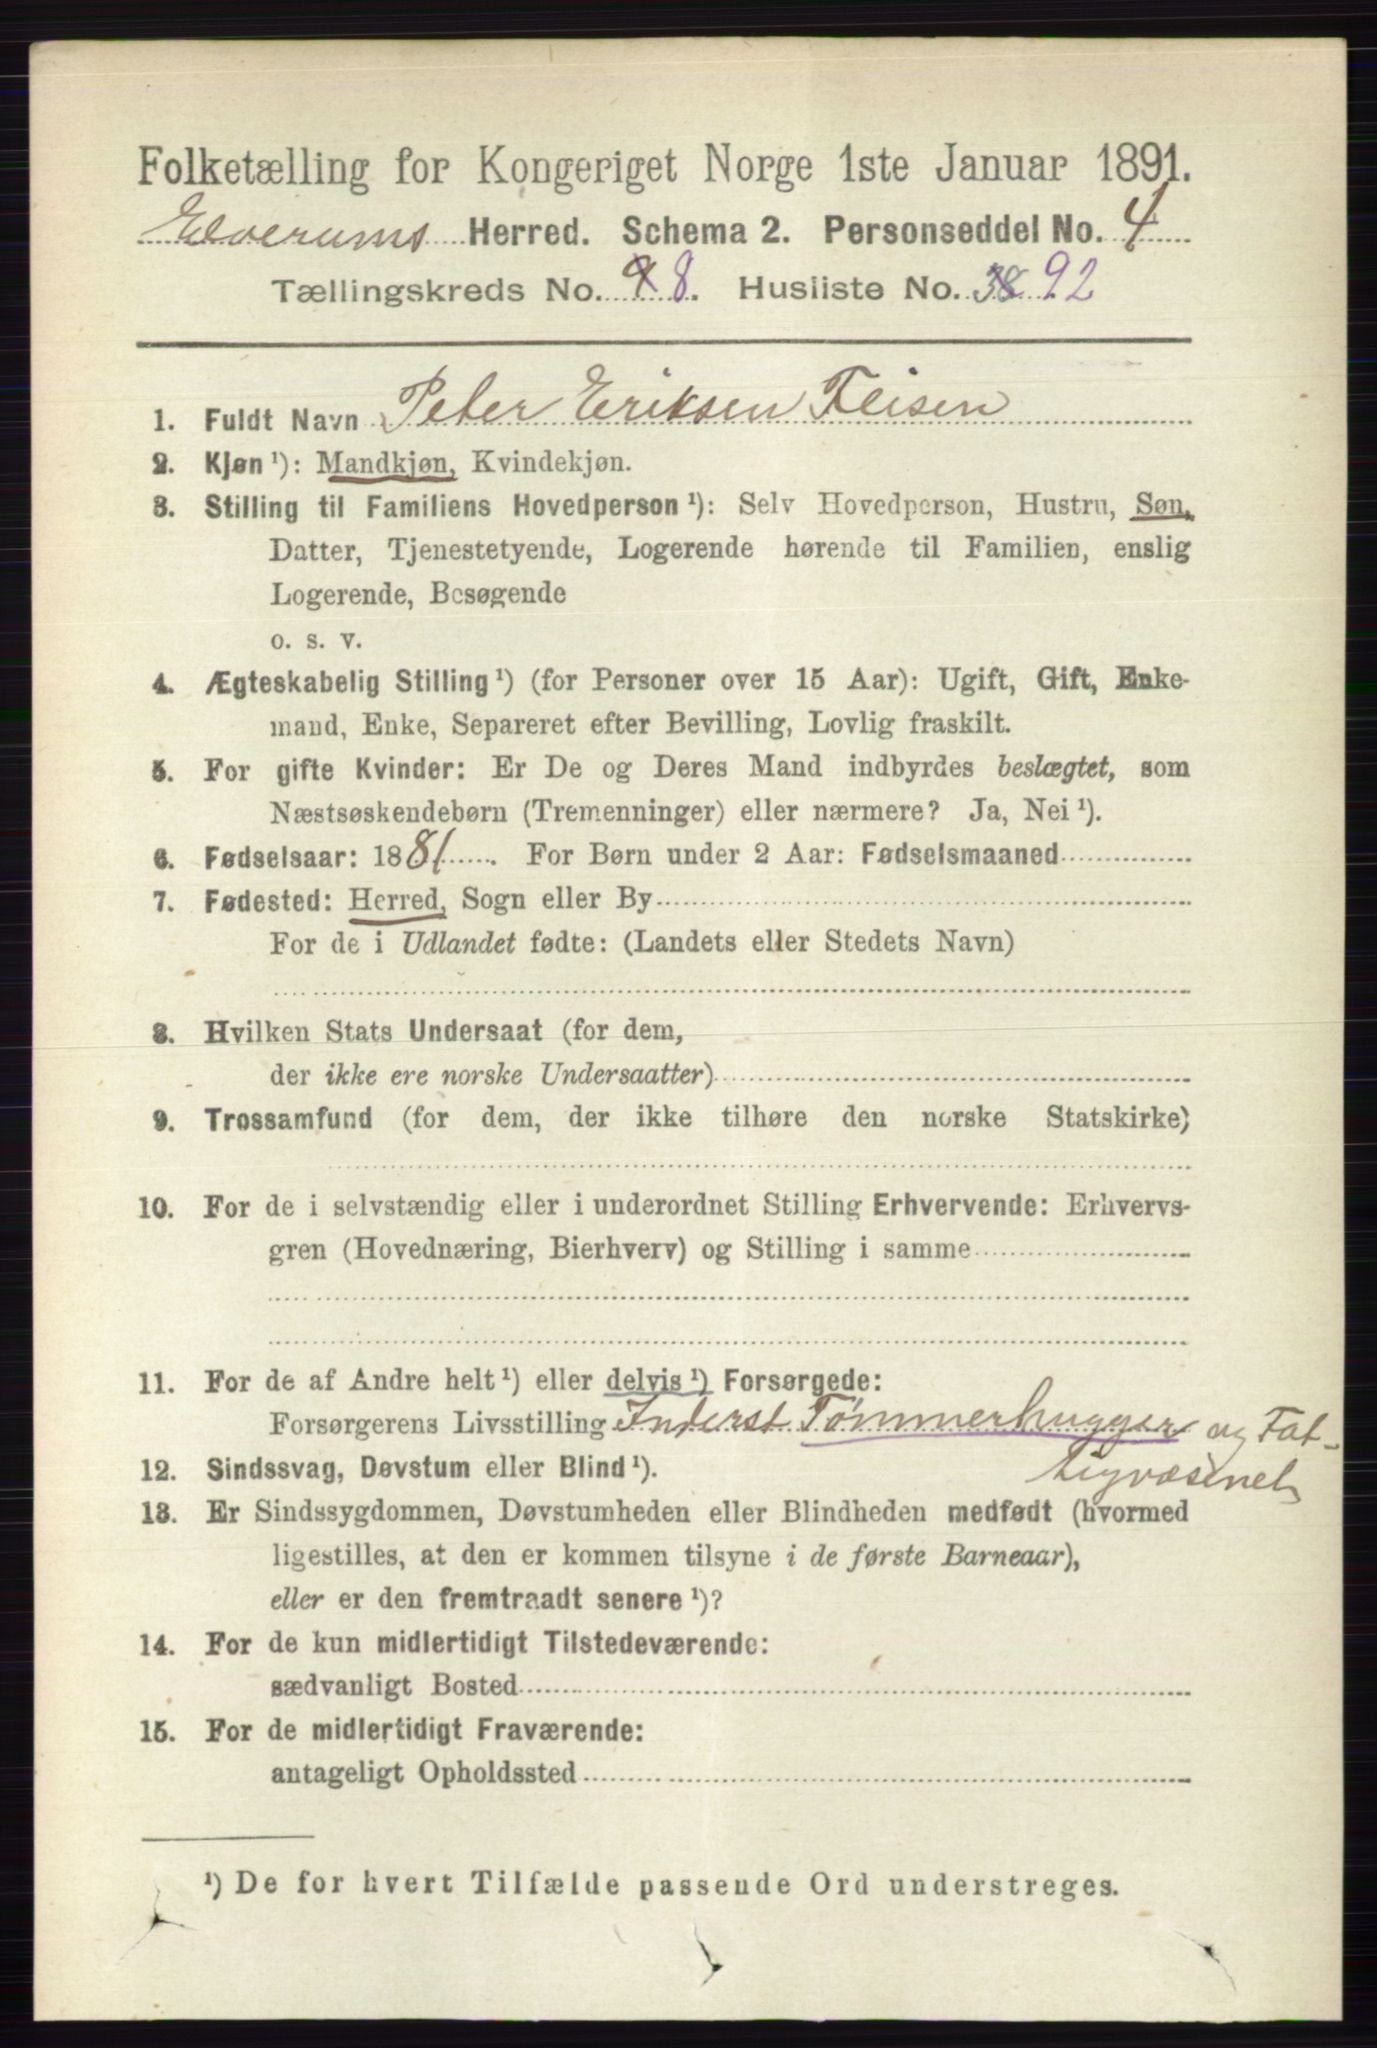 Folketælling for Kongeriget Norge 1ste Januar 1891.
Elverums Herred. Schema 2. Personseddel No. 4
Tællingskreds No. 9 8. Husliste No. 38 92
1. Fuldt Navn Peter Eriksen Fleisen
2. Kjøn ¹): Mandkjøn, Kvindekjøn.
3. Stilling til Familiens Hovedperson ¹): Selv Hovedperson, Hustru, Søn,
Datter, Tjenestetyende, Logerende hørende til Familien, enslig
Logerende, Besøgende
o. s. v.
4. Ægteskabelig Stilling ¹) (for Personer over 15 Aar): Ugift, Gift, Enke-
mand, Enke, Separeret efter Bevilling, Lovlig fraskilt.
5. For gifte Kvinder: Er De og Deres Mand indbyrdes beslægtet, som
Næstsøskendebørn (Tremenninger) eller nærmere? Ja, Nei ¹).
6. Fødselsaar: 1881. For Børn under 2 Aar: Fødselsmaaned
7. Fødested: Herred, Sogn eller By
For de i Udlandet fødte: (Landets eller Stedets Navn)
8. Hvilken Stats Undersaat (for dem,
der ikke ere norske Undersaatter)
9. Trossamfund (for dem, der ikke tilhøre den norske Statskirke)
10. For de i selvstændig eller i underordnet Stilling Erhvervende: Erhvervs-
gren (Hovednæring, Bierhverv) og Stilling i samme
11. For de af Andre helt ¹) eller delvis ¹) Forsørgede:
Forsørgerens Livsstilling Inderst Tømmerhugger og Fat-
tigvæsenet
12. Sindssvag, Døvstum eller Blind ¹).
13. Er Sindssygdommen, Døvstumheden eller Blindheden medfødt (hvormed
ligestilles, at den er kommen tilsyne i de første Barneaar),
eller er den fremtraadt senere ¹)?
14. For de kun midlertidigt Tilstedeværende:
sædvanligt Bosted
15. For de midlertidigt Fraværende:
antageligt Opholdssted
¹) De for hvert Tilfælde passende Ord understreges.